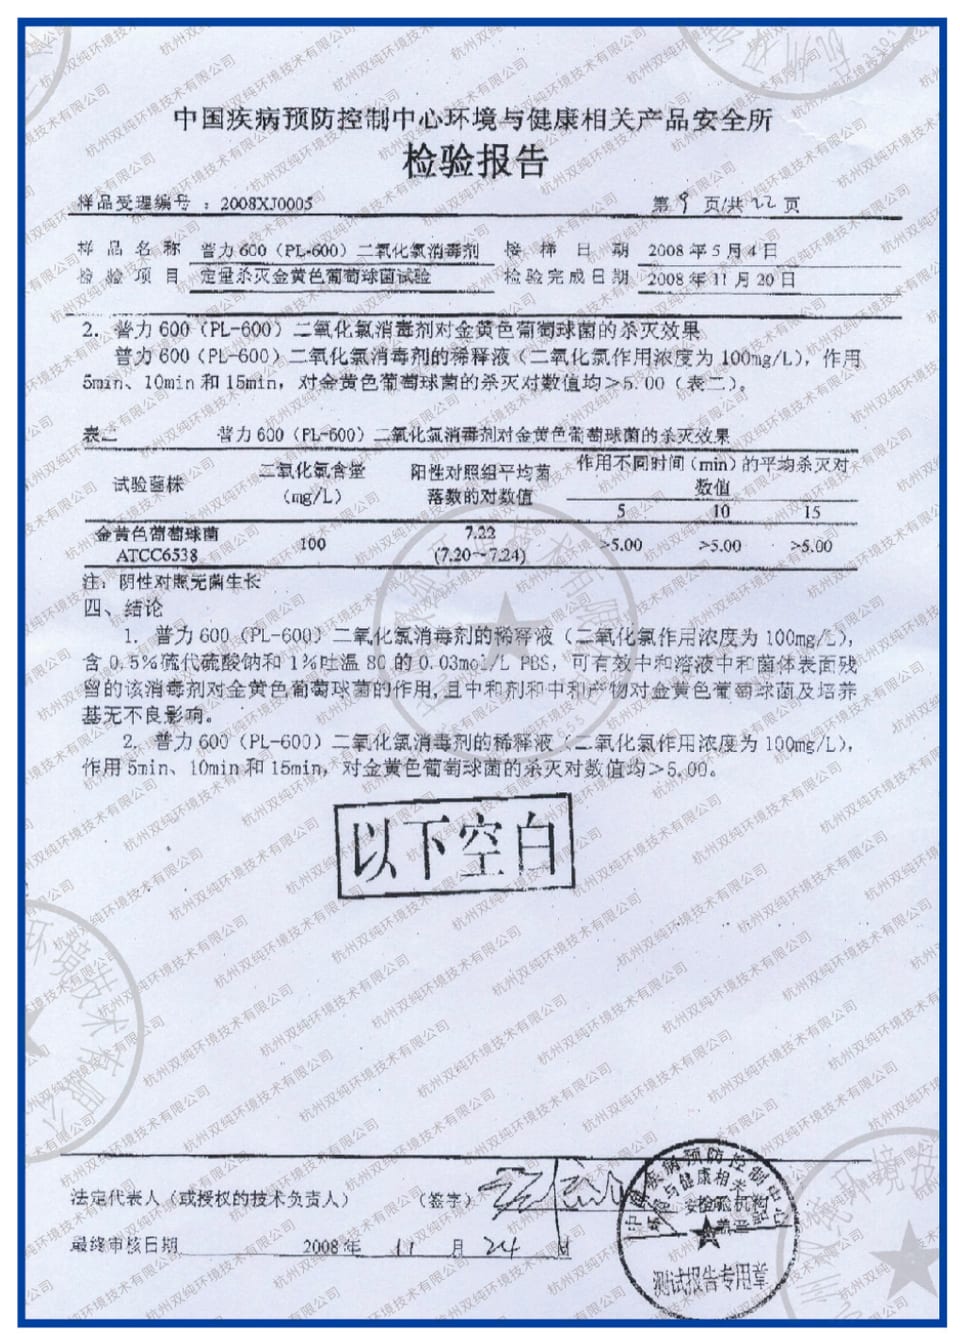 中国疾病预防控制中心环境与健康相关产品安全所
检验报告
样品受理编号：2008XJ0005 第 9 页/共 22 页
样品名称 普力600（PL-600）二氧化氯消毒剂 接样日期 2008年5月4日
检验项目 定量杀灭金黄色葡萄球菌试验 检验完成日期 2008年11月20日
2. 普力600（PL-600）二氧化氯消毒剂对金黄色葡萄球菌的杀灭效果
普力600（PL-600）二氧化氯消毒剂的稀释液（二氧化氯作用浓度为100mg/L），作用
5min、10min和15min，对金黄色葡萄球菌的杀灭对数值均>5.00（表二）。
表二 普力600（PL-600）二氧化氯消毒剂对金黄色葡萄球菌的杀灭效果
试验菌株 二氧化氯含量 阳性对照组平均菌 作用不同时间（min）的平均杀灭对
（mg/L） 落数的对数值 数值
5 10 15
金黄色葡萄球菌 100 7.22 >5.00 >5.00 >5.00
ATCC6538 (7.20～7.24)
注：阴性对照无菌生长
四、结论
1. 普力600（PL-600）二氧化氯消毒剂的稀释液（二氧化氯作用浓度为100mg/L），
含0.5%硫代硫酸钠和1%吐温80的0.03mol/L PBS，可有效中和溶液中和菌体表面残
留的该消毒剂对金黄色葡萄球菌的作用,且中和剂和中和产物对金黄色葡萄球菌及培养
基无不良影响。
2. 普力600（PL-600）二氧化氯消毒剂的稀释液（二氧化氯作用浓度为100mg/L），
作用5min、10min和15min，对金黄色葡萄球菌的杀灭对数值均>5.00。
以下空白
法定代表人（或授权的技术负责人） （签字）
中国疾病预防控制中心
环境与健康相关产品
安全所
检验机构
盖章
测试报告专用章
最终审核日期 2008年 11 月 24 日
杭州双纯环境技术有限公司